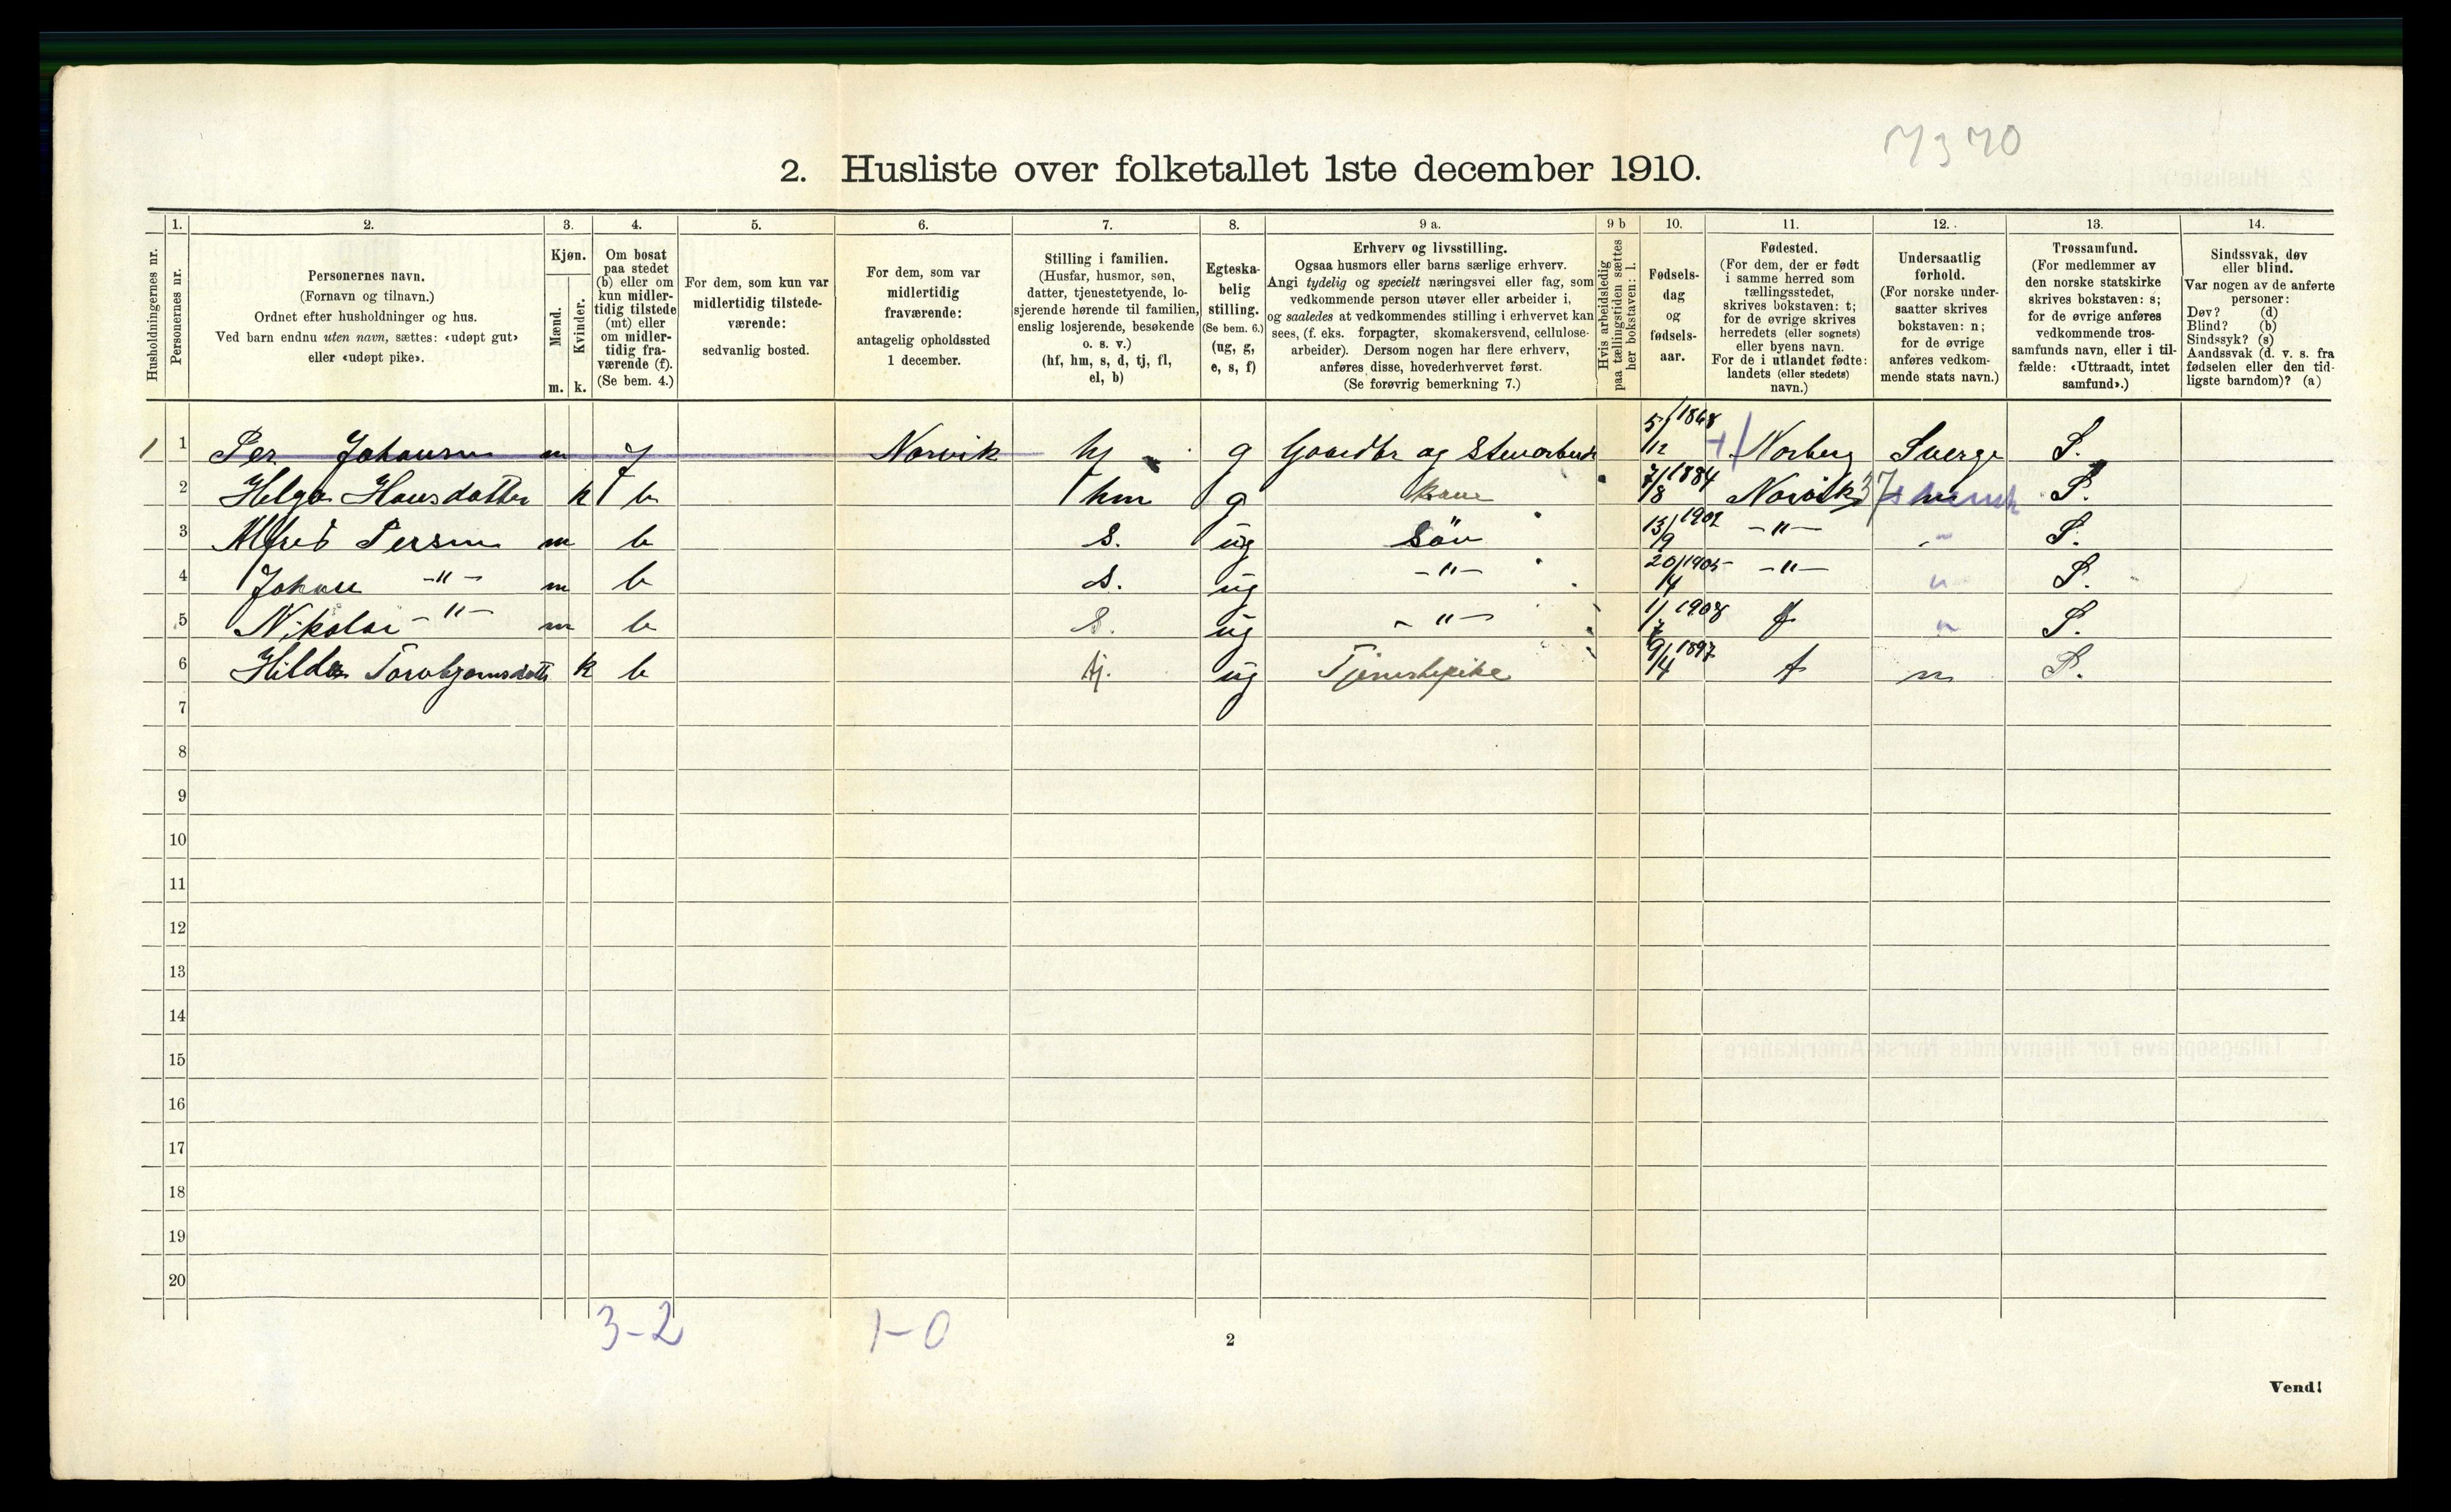 7370
2. Husliste over folketallet 1ste december 1910.
1. 2. 3. 4. 5. 6. 7. 8. 9 a. 9 b 10. 11. 12. 13. 14.
Husholdningernes nr.
Personernes nr.
Personernes navn.
(Fornavn og tilnavn.)
Ordnet efter husholdninger og hus.
Ved barn endnu uten navn, sættes: «udøpt gut»
eller «udøpt pike».
Kjøn.
Mænd.
Kvinder.
m. k.
Om bosat
paa stedet
(b) eller om
kun midler-
tidig tilstede
(mt) eller
om midler-
tidig fra-
værende (f).
(Se bem. 4.)
For dem, som kun var
midlertidig tilstede-
værende:
sedvanlig bosted.
For dem, som var
midlertidig
fraværende:
antagelig opholdssted
1 december.
Stilling i familien.
(Husfar, husmor, søn,
datter, tjenestetyende, lo-
sjerende hørende til familien,
enslig losjerende, besøkende
o. s. v.)
(hf, hm, s, d, tj, fl,
el, b)
Egteska-
belig
stilling.
(Se bem. 6.)
(ug, g,
e, s, f)
Erhverv og livsstilling.
Ogsaa husmors eller barns særlige erhverv.
Angi tydelig og specielt næringsvei eller fag, som
vedkommende person utøver eller arbeider i,
og saaledes at vedkommendes stilling i erhvervet kan
sees, (f. eks. forpagter, skomakersvend, cellulose-
arbeider). Dersom nogen har flere erhverv,
anføres disse, hovederhvervet først.
(Se forøvrig bemerkning 7.)
Hvis arbeidsledig
paa tællingstiden sættes
her bokstaven: l.
Fødsels-
dag
og
fødsels-
aar.
Fødested.
(For dem, der er født
i samme herred som
tællingsstedet,
skrives bokstaven: t;
for de øvrige skrives
herredets (eller sognets)
eller byens navn.
For de i utlandet fødte:
landets (eller stedets)
navn.)
Undersaatlig
forhold.
(For norske under-
saatter skrives
bokstaven: n;
for de øvrige
anføres vedkom-
mende stats navn.)
Trossamfund.
(For medlemmer av
den norske statskirke
skrives bokstaven: s;
for de øvrige anføres
vedkommende tros-
samfunds navn, eller i til-
fælde: «Uttraadt, intet
samfund».)
Sindssvak, døv
eller blind.
Var nogen av de anførte
personer:
Døv? (d)
Blind? (b)
Sindssyk? (s)
Aandssvak (d. v. s. fra
fødselen eller den tid-
ligste barndom)? (a)
1 1 Per Johansen m f Narvik hf g Gaardbr og Stenarbeid 5/12 1868 Norberg Sverge S.
2 Helga Hansdatter k b hm g kone 7/8 1884 Narvik S.
3 Alfred Persen m b s. ug Sön 13/9 1902 -"- S.
4 Johan -"- m b s. ug -"- 20/4 1905 -"- S.
5 Nikolai -"- m b S. ug -"- 1/7 1908 t S.
6 Hilda k b tj. ug Tjenestepike 9/4 1897 t n S.
7
8
9
10
11
12
13
14
15
16
17
18
19
20
3-2 1-0
2
Vend!